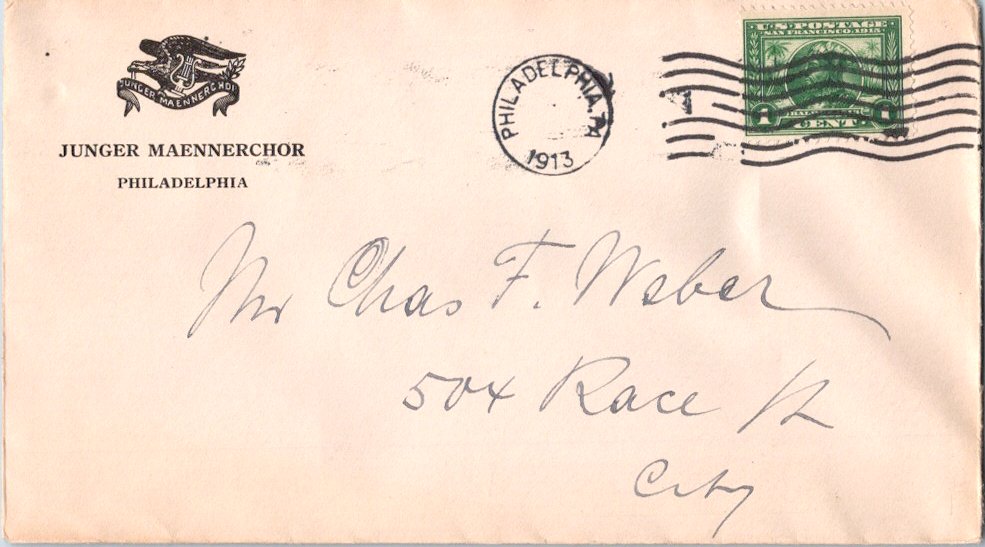 JUNGER MAENNERCHOR
JUNGER MAENNERCHOR
PHILADELPHIA
PHILADELPHIA, PA
1913
1
U.S. POSTAGE
SAN FRANCISCO 1915
1 1
CENT
Mr Chas F. Weber
504 Race St
City